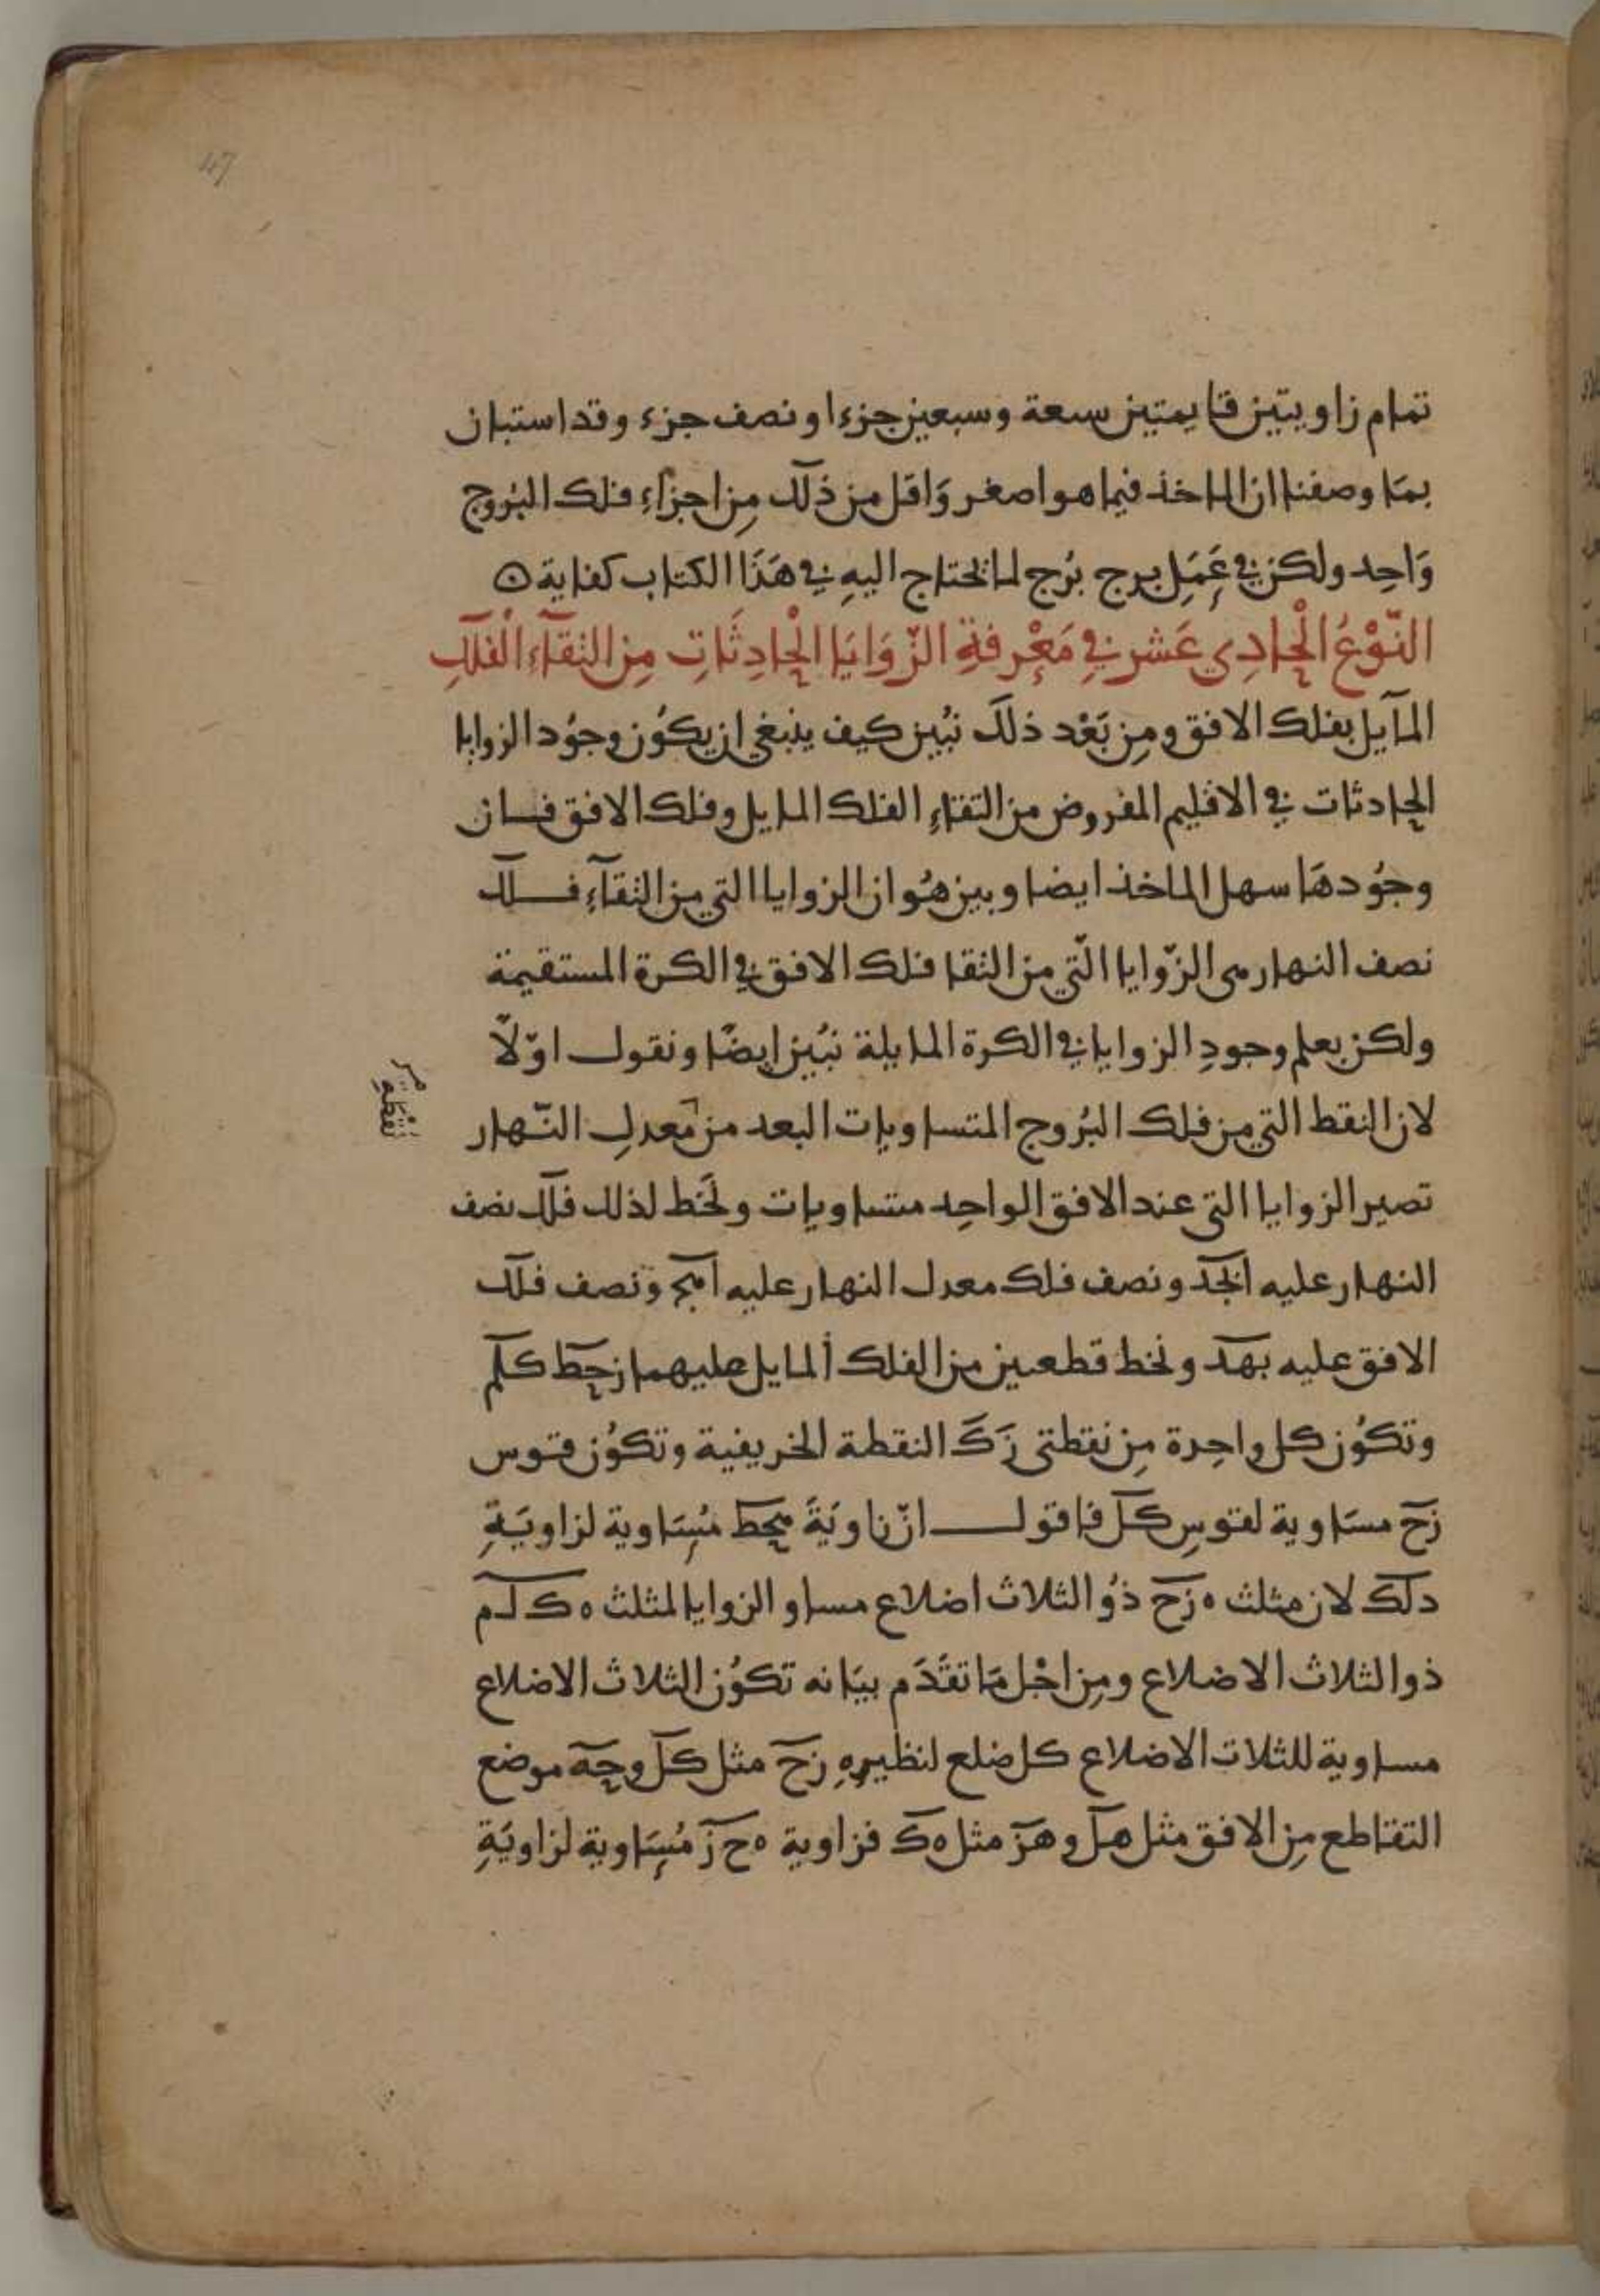 47
تمام زاويتين قايمتين سبعة وسبعين جزءا ونصف جزء وقد استبان
بما وصفنا ان الماخذ فيما هو اصغر وَاقل من ذلك مِن اجزآءِ فلك البُروج
وَاحِد ولكن في عَمَلِ برج بُرج لما يحتاج اليهِ في هَذَا الكتاب كفاية ⊙
النّوْعُ الْحادِي عَشر في مَعْرِفةِ الزّوَايَا الْحادِثَاتِ مِن التقآءِ الْفلكِ
المآيل بفلك الافق ومِن بَعْد ذلكَ نبُين كيف ينبغي ان يكوُن وجوُد الزوايا
الحادثات في الاقليم المفروض من التقاءِ الفلك المايل وفلك الافق فـان
وجوُدهَا سهل الماخذ ايضا وبين هوُ ان الزوايا التي من التقآءِ فـلك
نصف النهار هى الزّوايا الّتي من التقا فلك الافق في الكرة المستقيمة
ولكن يعلم وجودِ الزوايا في الكرة المايلة نبُين ايضًا ونقول اوّلًا
لان النقط التي من فلك البُروج المتساويات البعد من معدلِ النّهار
تصير الزوايا التي عند الافق الواحِد متساويات ونخَط لذلك فلك نصف
النهار عليه ابجد ونصف فلك معدل النهار عليه اهج ونصف فلك
الافق عليه بهد ونخط قطعين من الفلك المايل عليهما زحط كلم
وتكوُن كل واحِدة مِن نقطتى زَكَ النقطة الخريفية وتكوُن قوس
زح مسَاوية لقوسِ كل فاقول انّ زاويَةَ هحط مُسَاوية لزاويَةِ
دلك لان مثلث ه زح ذوُ الثلاث اضلاع مساو الزوايا لمثلث ه ك ل م
ذو الثلاث الاضلاع ومِن اجْل مَا تقَدَم بيَانه تكوُن الثلاث الاضلاع
مساوية للثلاث الاضلاع كل ضلع لنظيرهِ زح مثل كل وحه موضع
التقاطع مِن الافق مثل هل وهز مثل ه ك فزاوية ه ح ز مُسَاوية لزاويَةِ